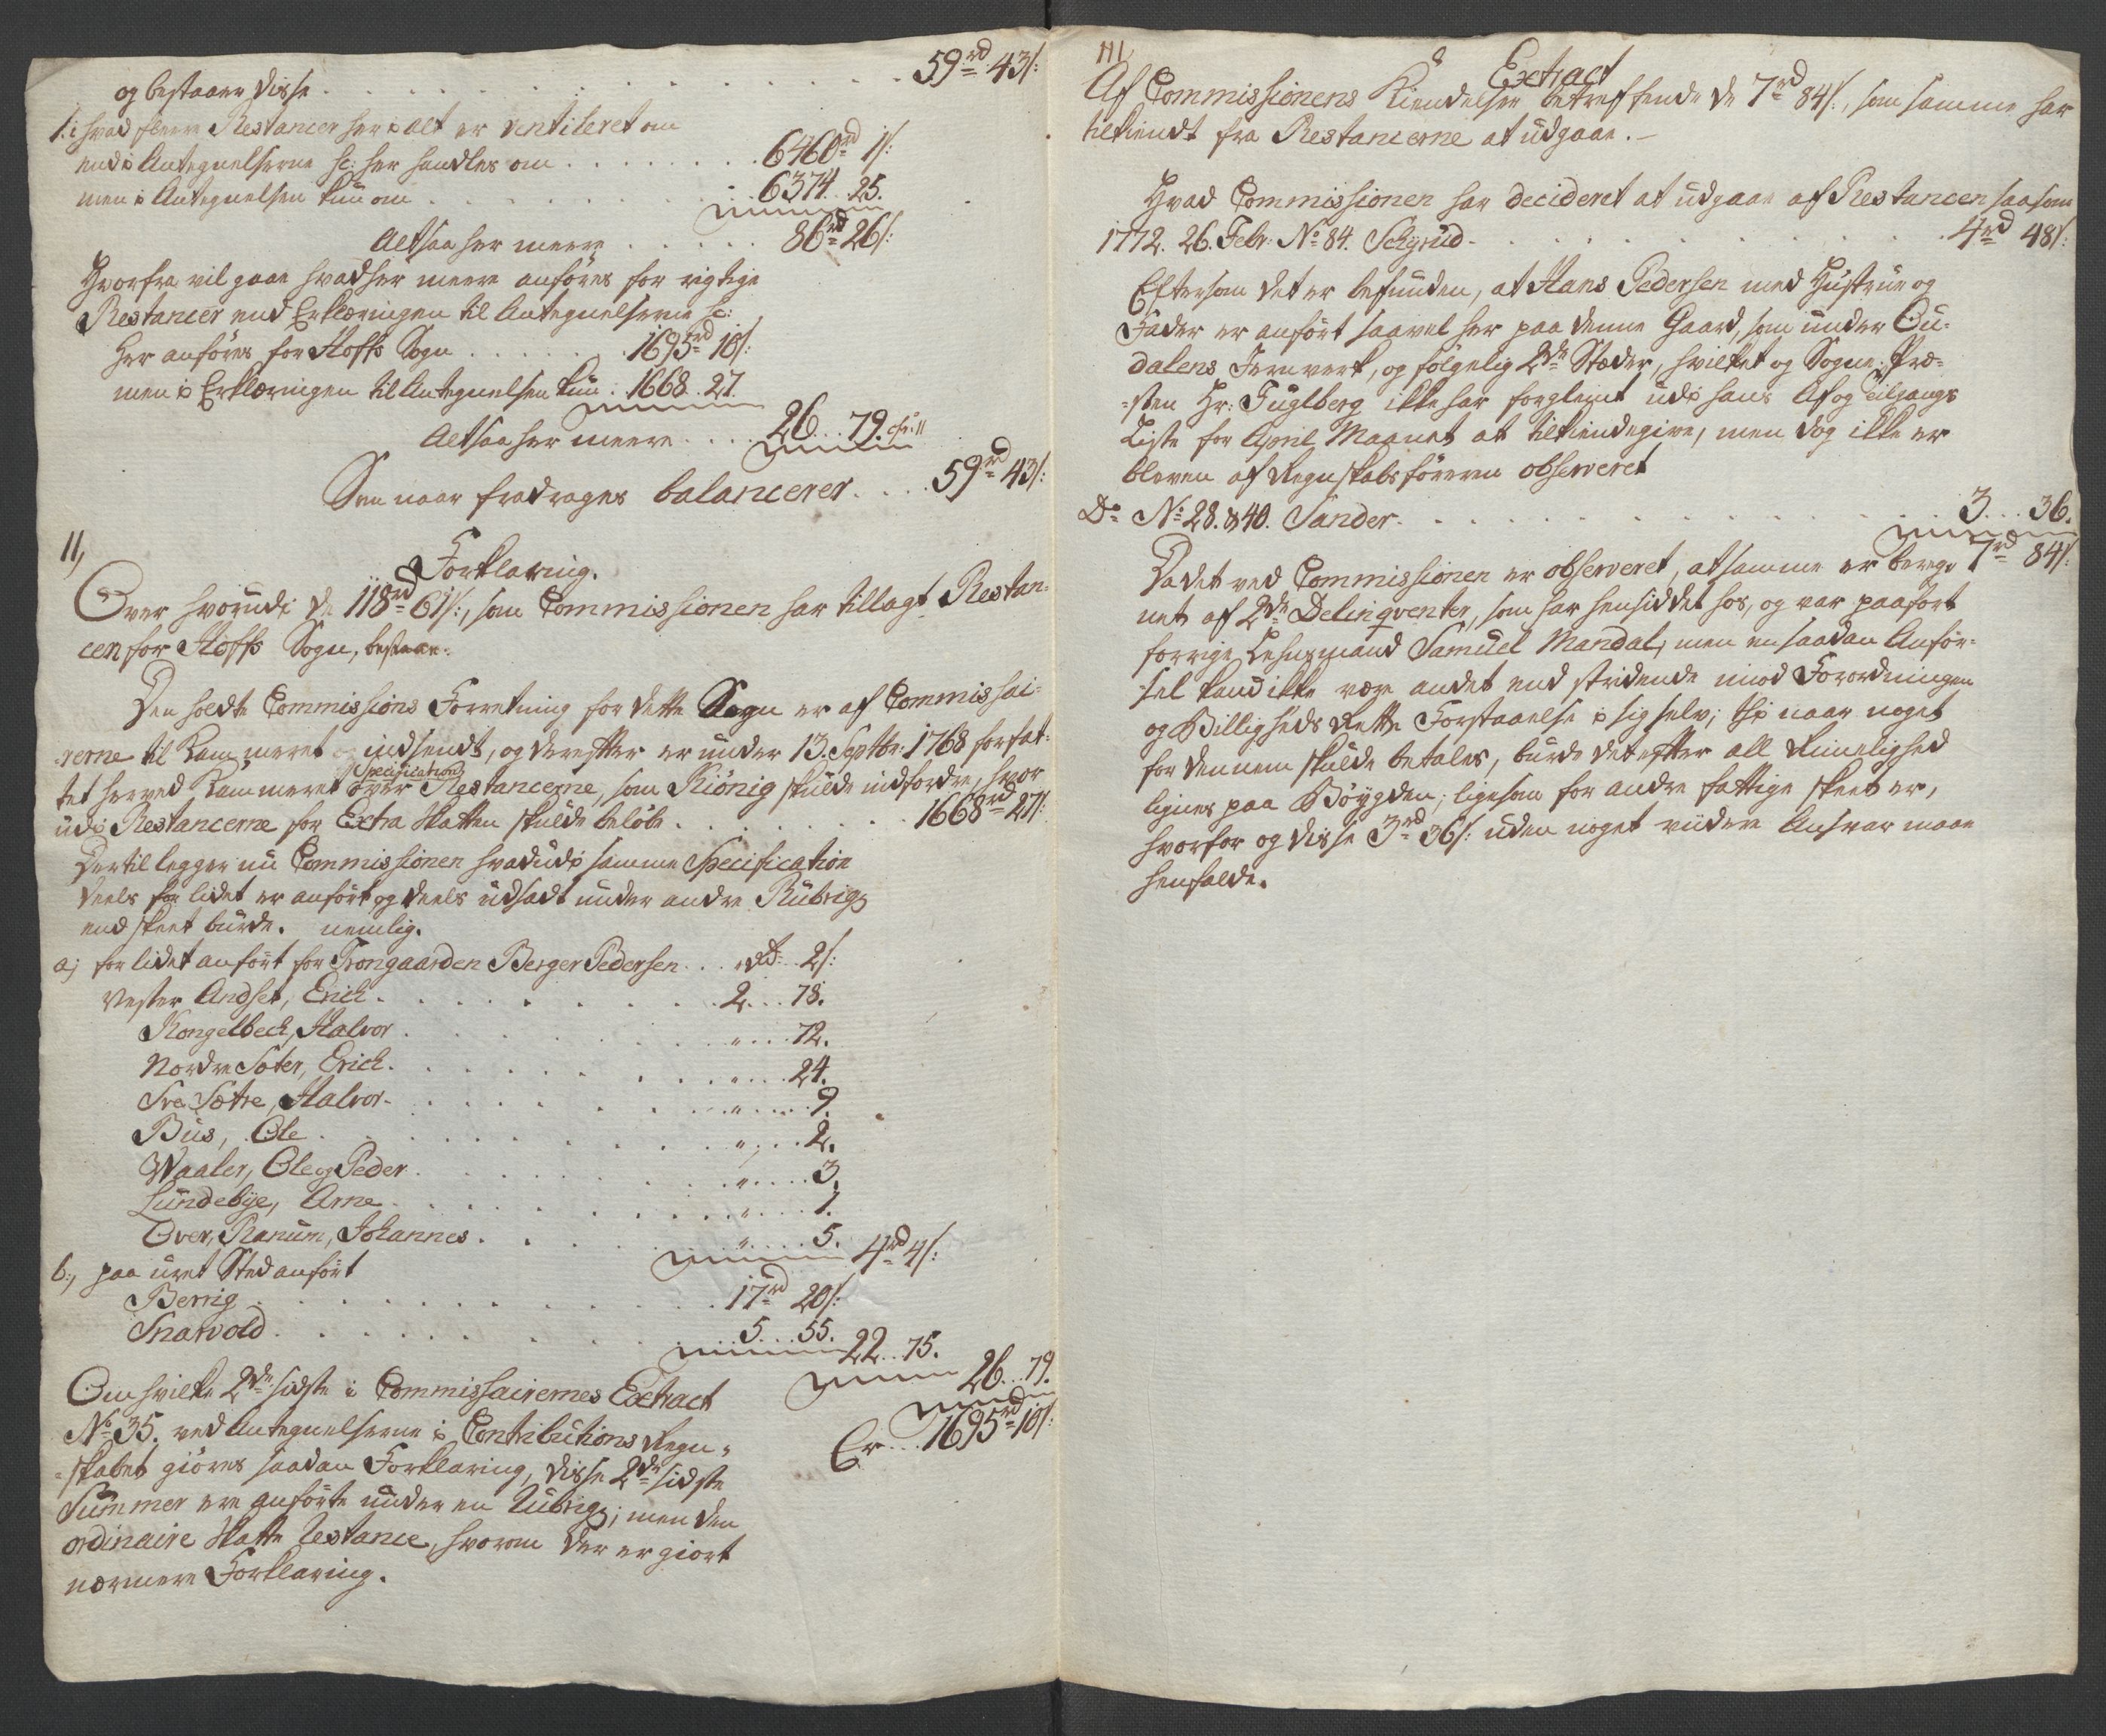 og bestaaer disse . . . . . . . . . . 59rd 43s:
1: i hvad fleere Restancer her i alt er ventileret om
end i Antegnelserne sc: her handles om . . . . . 6460rd 1s:
men i Antegnelsen kun om . . . . . . . 6374. 25.
Altsaa her meere . . . . . 86rd 26s:
Hvorfra vil gaae hvad her meere anføres for rigtige
Restancer end Erklæringen til Antegnelserne sc:
her anføres for Hoffs Sogn . . . . . 1695rd 10s:
men i Erklæringen til Antegnelsen kun . 1668. 27.
Altsaa her meere . . . . 26 . . 79. cfr: 11
Som naar fradrages balancerer . . . . 59rd 43s:
11,
Forklaring.
Over hvorudi de 118rd 61s:, som Commissionen har tillagt Restan-
cen for Hoffs Sogn, bestaaer.
Den holdte Commissions Forretning for dette Sogn er af Commissai-
rerne til Kammeret indsendt, og derefter er under 13. Septbr: 1768 forfat-
tet herved Kammeret Specification over Restancerne, som Kiönig skulde indfordre, hvor
udi Restancerne for Extra Skatten skulde beløbe . . . . . . . 1668rd 27s:
Dertil legger nu Commissionen hvad udi samme Specification
deels for lidet er anført og deels udsadt under andre Rubrig
end skeet burde. nemlig.
a; for lidet anført for Frongaarden Berger Pedersen . . . " rd . 2s:
Vester Andset, Erich . . . . . . . . 2 . . . 78.
Kongelbeck, Halvor . . . . . . . . " . . . 72.
Nordre Soter, Erich . . . . . . . . " . . . 24.
Sre Sætre, Halvor . . . . . . . . " . . . 9.
Bus, Ole . . . . . . . . " . . . 2.
Waaler, Ole og Peder . . . . . . . . " . . . 3.
Lundebye, Arne . . . . . . . . " . . . 1.
Over, Ranum, Johannes . . . . . . . " . . . 5. 4rd 4s:
b:, paa uret Sted anført
Berrig . . . . . . . . . . 17rd 20s:
Snarvold . . . . . . . . . 5 . . . 55. 22 . . 75. 26 . . 79.
Er . . . 1695rd 10s:
Om hvilke 2de sidste i Commissairernes Extract
No 35. ved Antegnelserne i Contributions Regn-
skabet giøres saadan Forklaring, disse 2de sidste
Summer ere anførte under en Rubrig; men den
ordinaire Skatte Restance, hvorom der er giort
nærmere Forklaring.
111,
Extract
Af Commissionens Kiendelser betreffende de 7rd 84s:, som samme har
tilkiendt fra Restancerne at udgaae.
Hvad Commissionen har decideret at udgaae af Restancen saasom
1772. 26. Febr: No 84. Schyrud . . . . . . . . . . . 4rd 48s:
Eftersom det er befunden, at Hans Pedersen med Hustrue og
Fader er anført saavel her paa denne Gaard, som under Ou-
dalens Jernverk, og følgelig 2de Stæder, hvilket og Sogne Præ-
sten Hr: Fuglberg ikke har forglemt udi hans Af og Tilgangs
Liste for April Maanet at tilkiendegive, men dog ikke er
bleven af Regnskabsføreren observeret
Do No 28. & 40. Sander . . . . . . . . . . . 3 . . . 36.
7rd 84s:
Da det ved Commissionen er observeret, at samme er bereg-
net af 2de Delinqventer, som har hensiddet hos, og var paaført
forrige Lehnsmand Samuel Mandal, men en saadan Anfør-
sel kand ikke være andet end stridende imod Forordningen
og Billigheds Rette Forstaaelse i sig selv; thi naar noget
for dennem skulde betales, burde det efter all Rimelighed
lignes paa Bøygden, ligesom for andre fattige skeet er,
hvorfor og disse 3rd 36s: uden noget viidere Ansvar maae
henfalde.